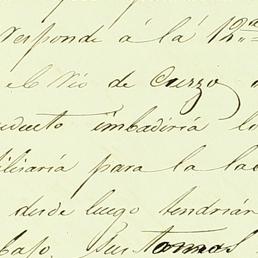 responde á lá 12ª
el Rio de Cuzzo
ducto imbadiría lo
lisaría para la lab
desde luego tendrían
bajo. Sus tomas